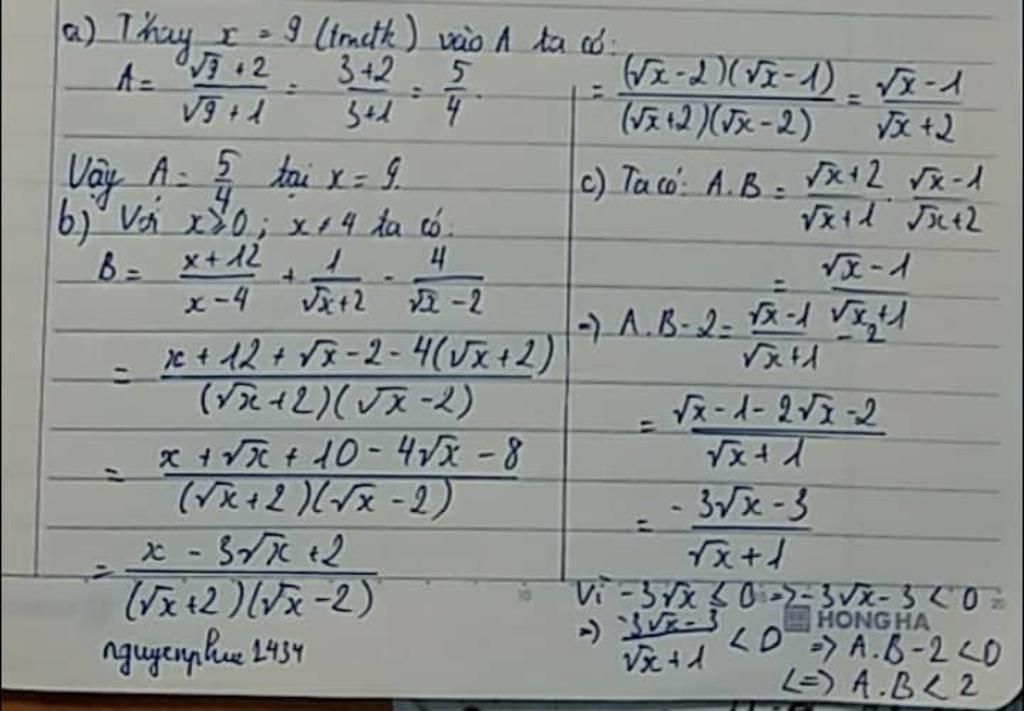 a) Thay x = 9 (tmđk) vào A ta có:
A = (√9 + 2)/(√9 + 1) = (3+2)/(3+1) = 5/4.
Vậy A = 5/4 tại x = 9.
b) Với x ≥ 0 ; x ≠ 4 ta có:
B = (x + 12)/(x - 4) + 1/(√x + 2) - 4/(√x - 2)
= (x + 12 + √x - 2 - 4(√x + 2))/((√x + 2)(√x - 2))
= (x + √x + 10 - 4√x - 8)/((√x + 2)(√x - 2))
= (x - 3√x + 2)/((√x + 2)(√x - 2))
nguyenphuc2434
= ((√x - 2)(√x - 1))/((√x + 2)(√x - 2)) = (√x - 1)/(√x + 2)
c) Ta có: A.B = (√x + 2)/(√x + 1) . (√x - 1)/(√x + 2)
= (√x - 1)/(√x + 1)
=> A.B - 2 = (√x - 1)/(√x + 1) - 2
= (√x - 1 - 2√x - 2)/(√x + 1)
= (-3√x - 3)/(√x + 1)
Vì -3√x ≤ 0 => -3√x - 3 < 0
HONG HA
=> (-3√x - 3)/(√x + 1) < 0 => A.B - 2 < 0
<=> A.B < 2